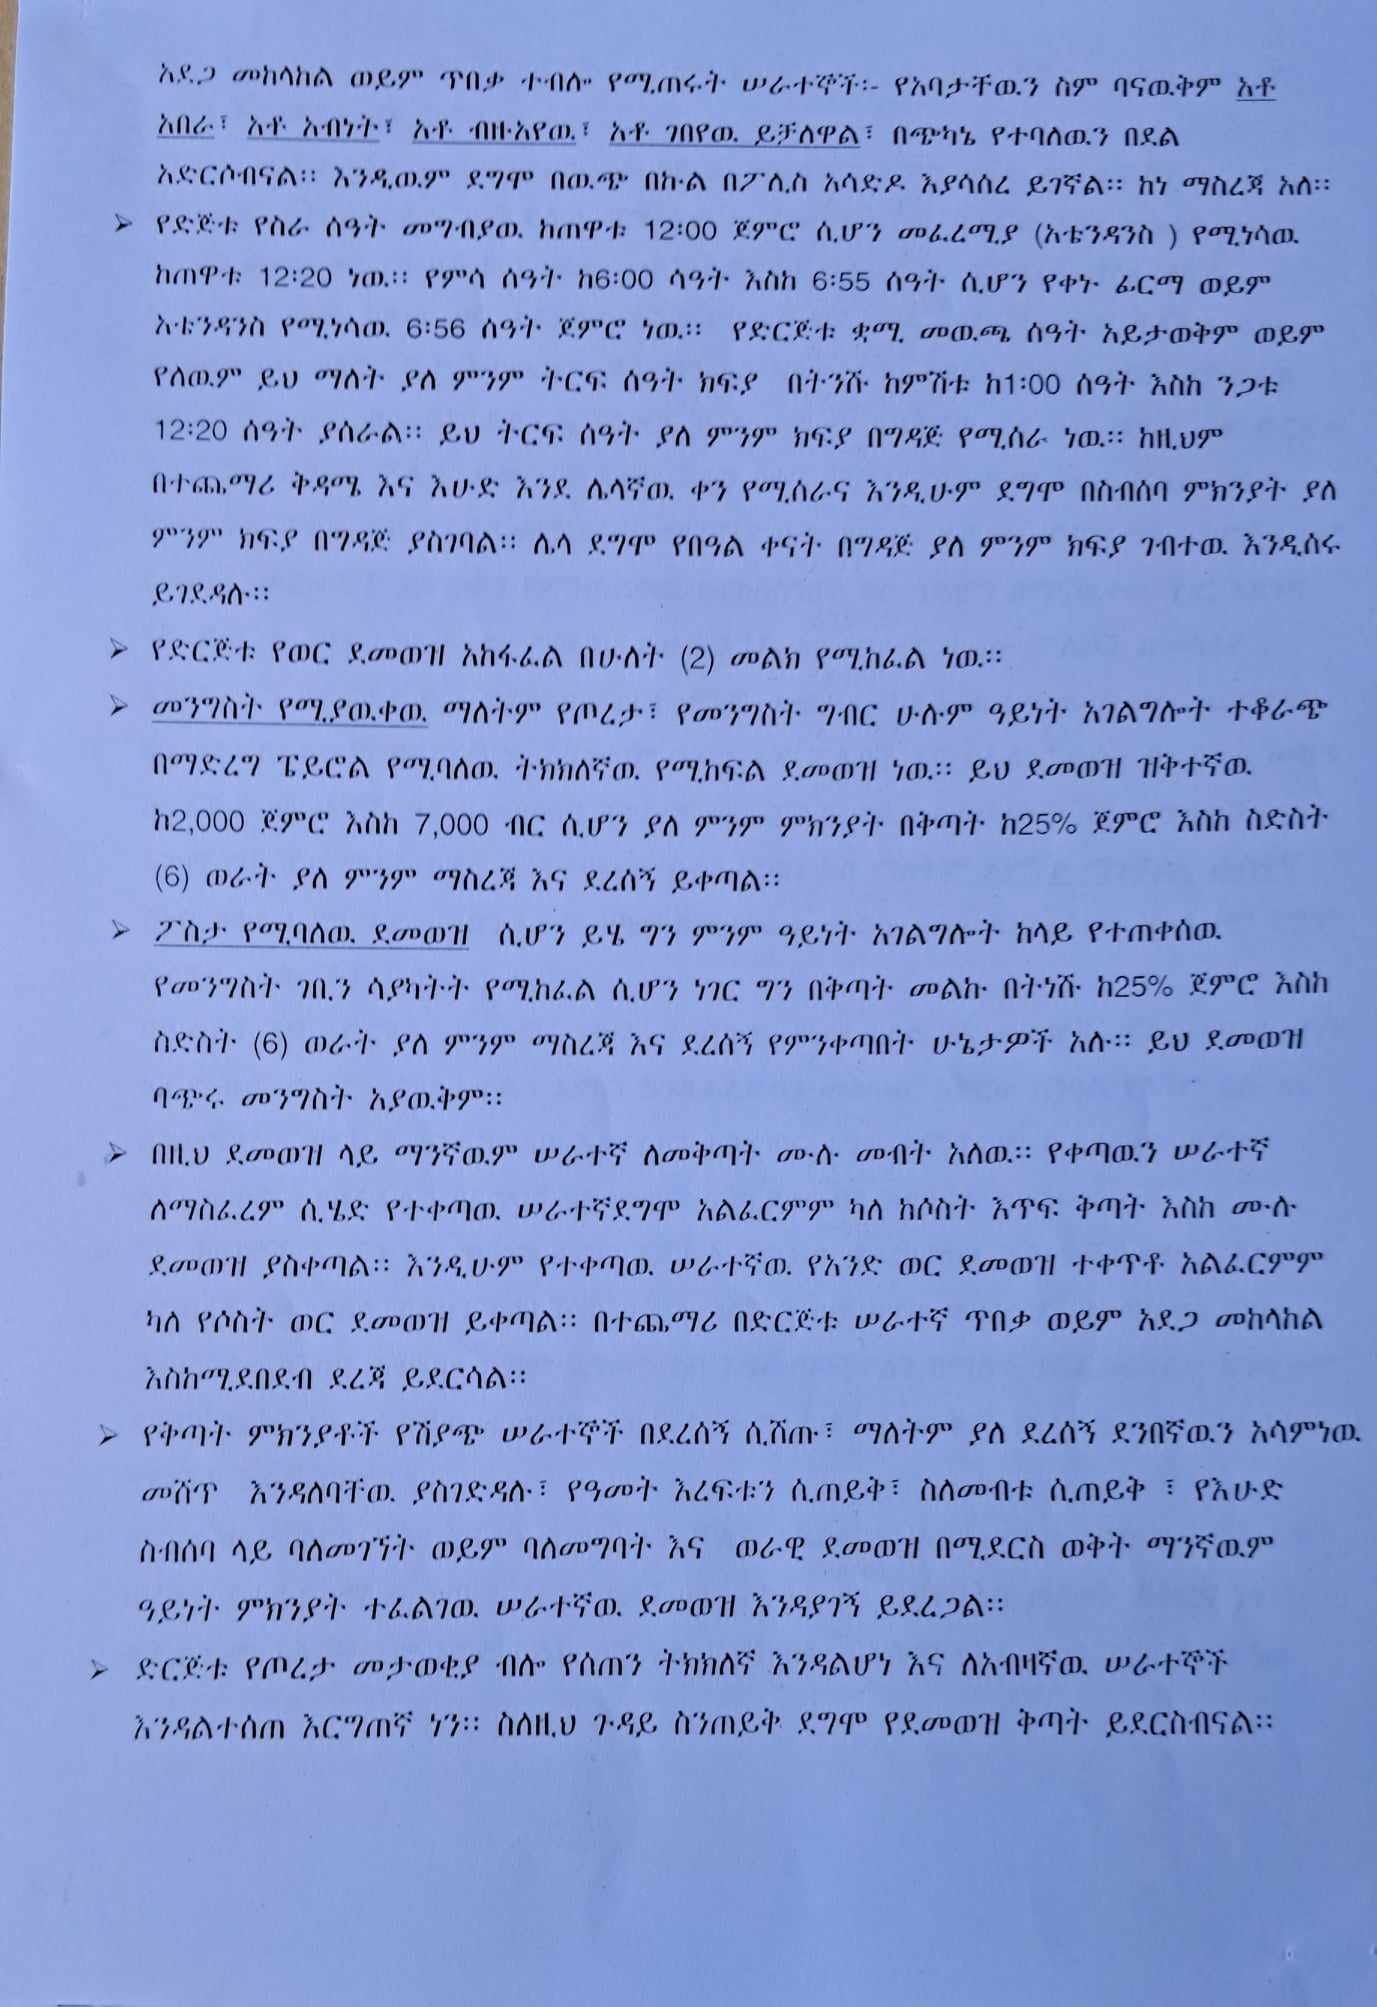 አደጋ መከላከል ወይም ጥበቃ ተብሎ የሚጠሩት ሠራተኞች፡- የአባታቸዉን ስም ባናዉቅም አቶ
አበራ፣ አቶ አብነት፣ አቶ ብዙአየዉ፣ አቶ ገበየዉ ይቻለዋል፣ በጭካኔ የተባለዉን በደል
አድርሶብናል። እንዲዉም ደግሞ በዉጭ በኩል በፖሊስ አሳድዶ እያሳሰረ ይገኛል። ከነ ማስረጃ አለ።
➢ የድጅቱ የስራ ሰዓት መግብያዉ ከጠዋቱ 12፡00 ጀምሮ ሲሆን መፈረሚያ (አቴንዳንስ ) የሚነሳዉ
ከጠዋቱ 12፡20 ነዉ። የምሳ ሰዓት ከ6፡00 ሳዓት እስከ 6፡55 ሰዓት ሲሆን የቀኑ ፊርማ ወይም
አቴንዳንስ የሚነሳዉ 6፡56 ሰዓት ጀምሮ ነዉ። የድርጅቱ ቋሚ መዉጫ ሰዓት አይታወቅም ወይም
የለዉም ይህ ማለት ያለ ምንም ትርፍ ሰዓት ክፍያ በትንሹ ከምሽቱ ከ1፡00 ሰዓት እስከ ንጋቱ
12፡20 ሰዓት ያሰራል። ይህ ትርፍ ሰዓት ያለ ምንም ክፍያ በግዳጅ የሚሰራ ነዉ። ከዚህም
በተጨማሪ ቅዳሜ እና እሁድ እንደ ሌላኛዉ ቀን የሚሰራና እንዲሁም ደግሞ በስብሰባ ምክንያት ያለ
ምንም ክፍያ በግዳጅ ያስገባል። ሌላ ደግሞ የበዓል ቀናት በግዳጅ ያለ ምንም ክፍያ ገብተዉ እንዲሰሩ
ይገደዳሉ።
➢ የድርጅቱ የወር ደመወዝ አከፋፈል በሁለት (2) መልክ የሚከፈል ነዉ።
➢ መንግስት የሚያዉቀዉ ማለትም የጦረታ፣ የመንግስት ግብር ሁሉም ዓይነት አገልግሎት ተቆራጭ
በማድረግ ፔይሮል የሚባለዉ ትክክለኛዉ የሚከፍል ደመወዝ ነዉ። ይህ ደመወዝ ዝቅተኛዉ
ከ2,000 ጀምሮ እስከ 7,000 ብር ሲሆን ያለ ምንም ምክንያት በቅጣት ከ25% ጀምሮ እስከ ስድስት
(6) ወራት ያለ ምንም ማስረጃ እና ደረሰኝ ይቀጣል።
➢ ፖስታ የሚባለዉ ደመወዝ ሲሆን ይሄ ግን ምንም ዓይነት አገልግሎት ከላይ የተጠቀሰዉ
የመንግስት ገቢን ሳያካትት የሚከፈል ሲሆን ነገር ግን በቅጣት መልኩ በትነሹ ከ25% ጀምሮ እስከ
ስድስት (6) ወራት ያለ ምንም ማስረጃ እና ደረሰኝ የምንቀጣበት ሁኔታዎች አሉ። ይህ ደመወዝ
ባጭሩ መንግስት አያዉቅም።
➢ በዚህ ደመወዝ ላይ ማንኛዉም ሠራተኛ ለመቅጣት ሙሉ መብት አለዉ። የቀጣዉን ሠራተኛ
ለማስፈረም ሲሄድ የተቀጣዉ ሠራተኛደግሞ አልፈርምም ካለ ከሶስት እጥፍ ቅጣት እስከ ሙሉ
ደመወዝ ያስቀጣል። እንዲሁም የተቀጣዉ ሠራተኛዉ የአንድ ወር ደመወዝ ተቀጥቶ አልፈርምም
ካለ የሶስት ወር ደመወዝ ይቀጣል። በተጨማሪ በድርጅቱ ሠራተኛ ጥበቃ ወይም አደጋ መከላከል
እስከሚደበደብ ደረጃ ይደርሳል።
➢ የቅጣት ምክንያቶች የሽያጭ ሠራተኞች በደረሰኝ ሲሸጡ፣ ማለትም ያለ ደረሰኝ ደንበኛዉን አሳምነዉ
መሸጥ እንዳለባቸዉ ያስገድዳሉ፣ የዓመት እረፍቱን ሲጠይቅ፣ ስለመብቱ ሲጠይቅ ፣ የእሁድ
ስብሰባ ላይ ባለመገኘት ወይም ባለመግባት እና ወራዊ ደመወዝ በሚደርስ ወቅት ማንኛዉም
ዓይነት ምክንያት ተፈልገዉ ሠራተኛዉ ደመወዝ እንዳያገኝ ይደረጋል።
➢ ድርጅቱ የጦረታ መታወቂያ ብሎ የሰጠን ትክክለኛ እንዳልሆነ እና ለአብዛኛዉ ሠራተኞች
እንዳልተሰጠ እርግጠኛ ነን። ስለዚህ ጉዳይ ስንጠይቅ ደግሞ የደመወዝ ቅጣት ይደርስብናል።